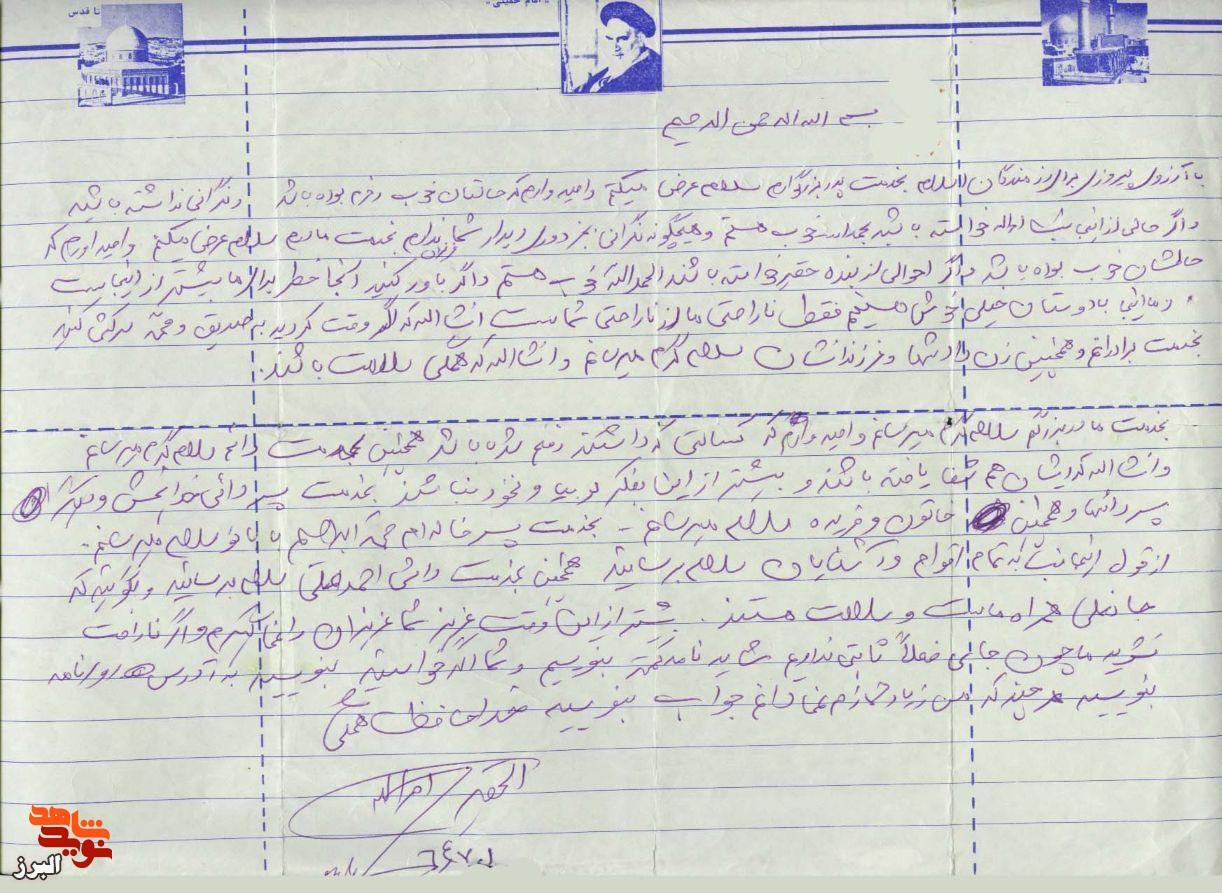 تا قدس
"امام خمینی"
بسم الله الرحمن الرحیم
با آرزوی پیروزی برای رزمندگان اسلام بخدمت پدر بزرگوارم سلام عرض میکنم و امیدوارم که حالتان خوب و خرم بوده باشد و نگرانی نداشته باشید
و اگر حالی از اینجانب خواسته باشید بحمدالله خوب هستم و هیچگونه نگرانی بجز دوری دیدار شما ندارم بخدمت مادرم سلام عرض میکنم و امیدوارم که
حالشان خوب بوده باشد و اگر احوالی از بنده حقیر خواسته باشند الحمدالله خوب هستم و اگر باور کنید اینجا خطر برای ما بیشتر از اینجا نیست
و ما اینجا با دوستان خیلی خوش هستیم فقط ناراحتی ما از ناراحتی شماست انشاالله که اگر وقت کردید به صدیق و عمه سرکشی کنید
بخدمت برادرانم و همچنین زن داداشها و فرزندانشان سلام گرم میرسانم و انشاالله که همگی سلامت باشند.
بخدمت مادربزرگم سلام گرم میرسانم و امیدوارم که کسالتی که داشتند رفع شده باشد همچنین بخدمت سلام گرم میرسانم
و انشاالله که ایشان هم شفا یافته باشند و بیشتر از این بفکر خود نباشند بخدمت پسر دائی خدابخش و دیگر
پسر دائیها و همچنین خاتون و فریده سلام میرسانم - بخدمت پسر خاله ام سلام میرسانم.
از قول اینجانب به تمام اقوام و آشنایان سلام برسانید همچنین بخدمت احمد سلام برسانید و بگوئید که
همراه ماست و سلامت هستند. بیشتر از این وقت عزیز شما عزیزان را نمیگیرم و اگر ناراحت
نشوید ما چون جای فعلاً ثابتی نداریم شاید نامه کمتر بنویسیم و شما اگر خواستید بنویسید به آدرس نامه
بنویسید هر چند که من زیاد جواب بنویسید خداحافظ همگی
الحقیر امرالله
نوید شاهد
البرز